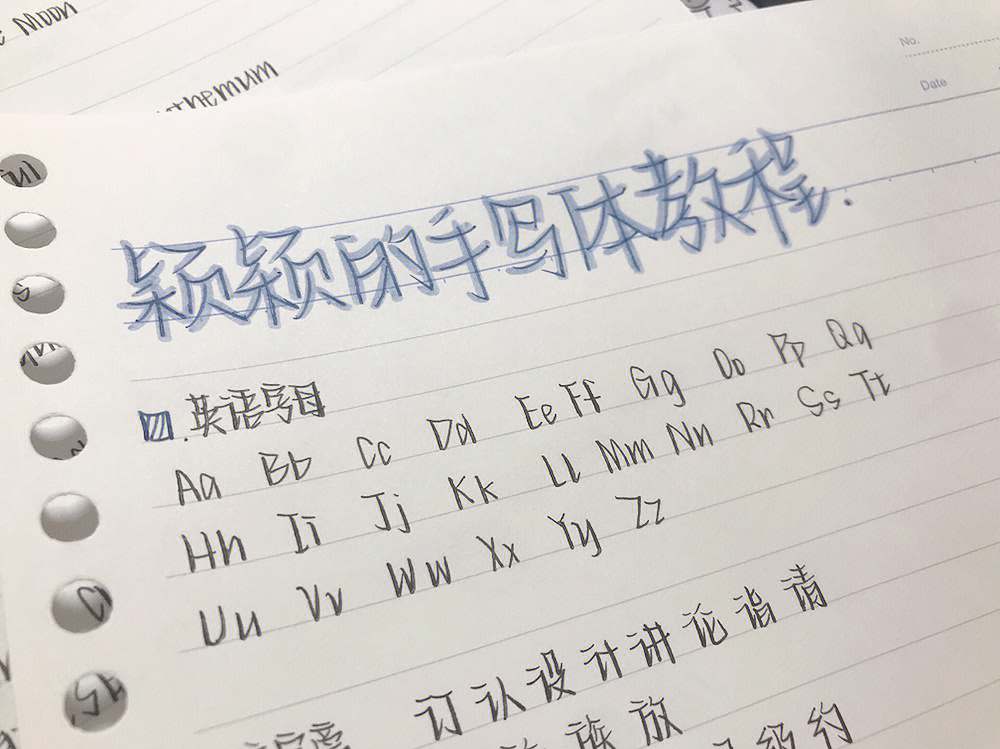 Moon
themum
No.
Date
颖颖的手写体教程.
四.英语字母
Aa Bb Cc Dd Ee Ff Gg Oo Pp Qq
Hh Ii Jj Kk Ll Mm Nn Rr Ss Tt
Uu Vv Ww Xx Yy Zz
订认设计讲论请
族放
级约